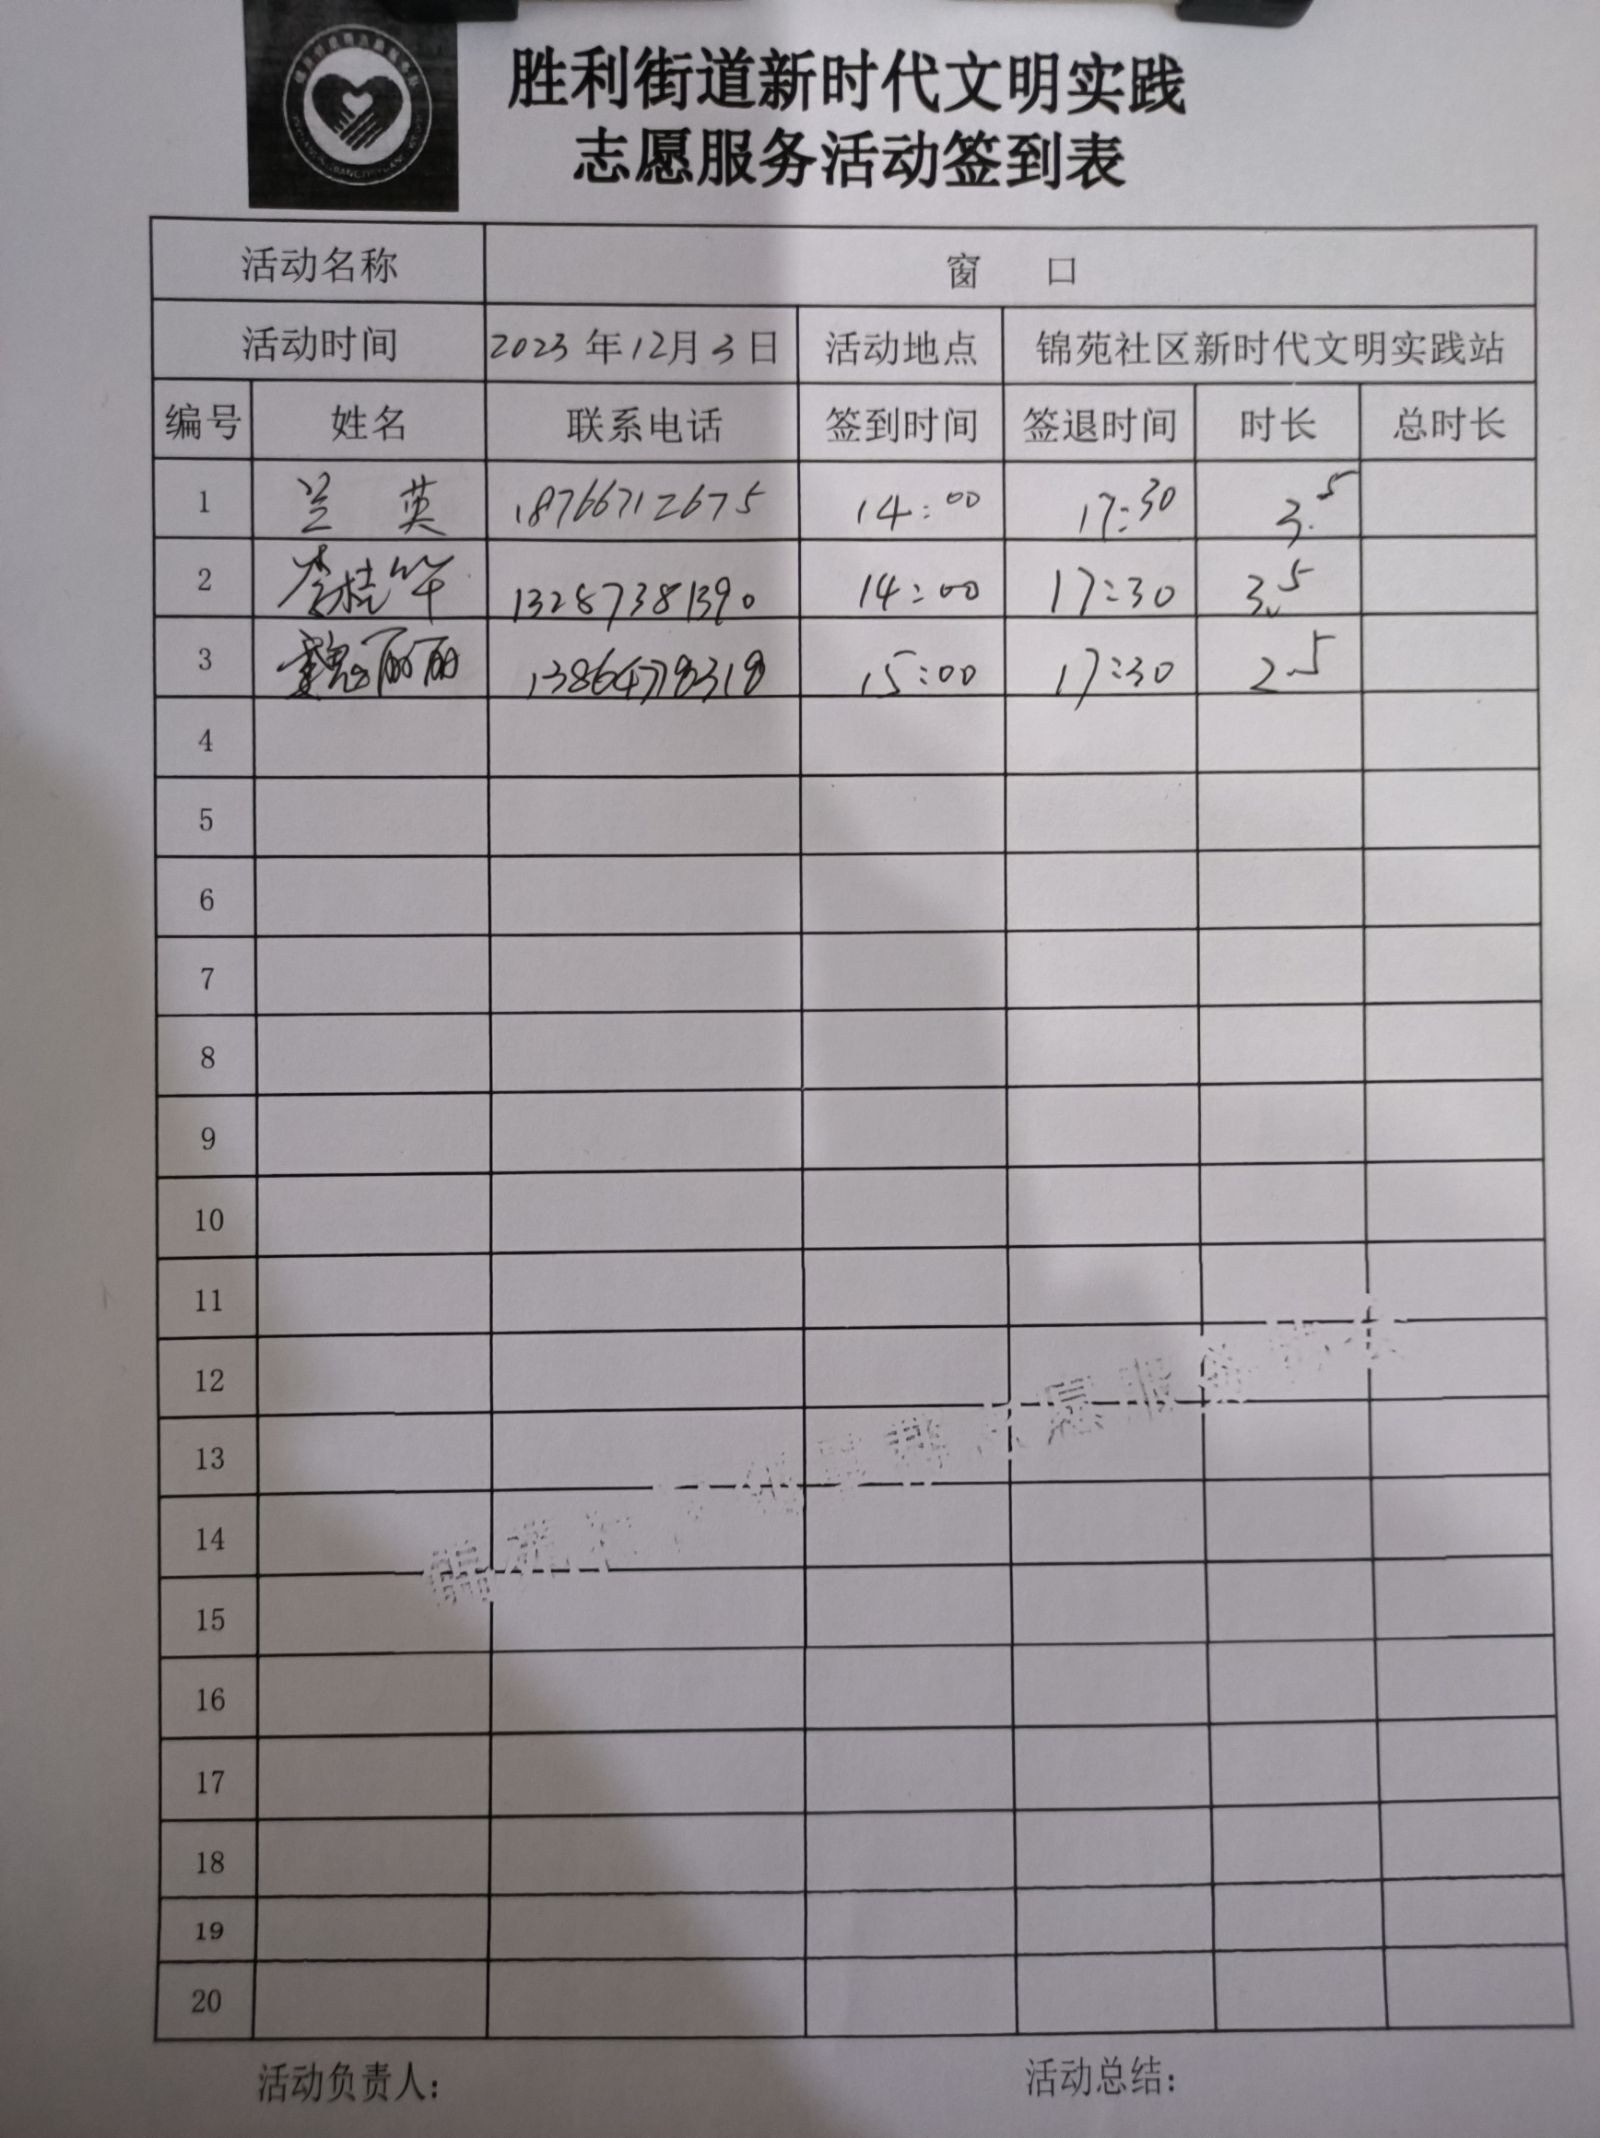 胜利街道新时代文明实践
志愿服务活动签到表
活动名称 窗 口
活动时间 2023年12月3日 活动地点 锦苑社区新时代文明实践站
编号 姓名 联系电话 签到时间 签退时间 时长 总时长
1 兰英 18766712675 14:00 17:30 3.5
2 李桂华 13287381390 14:00 17:30 3.5
3 魏丽丽 13864778318 15:00 17:30 2.5
4
5
6
7
8
9
10
11
12
13
14
15
16
17
18
19
20
活动负责人: 活动总结: